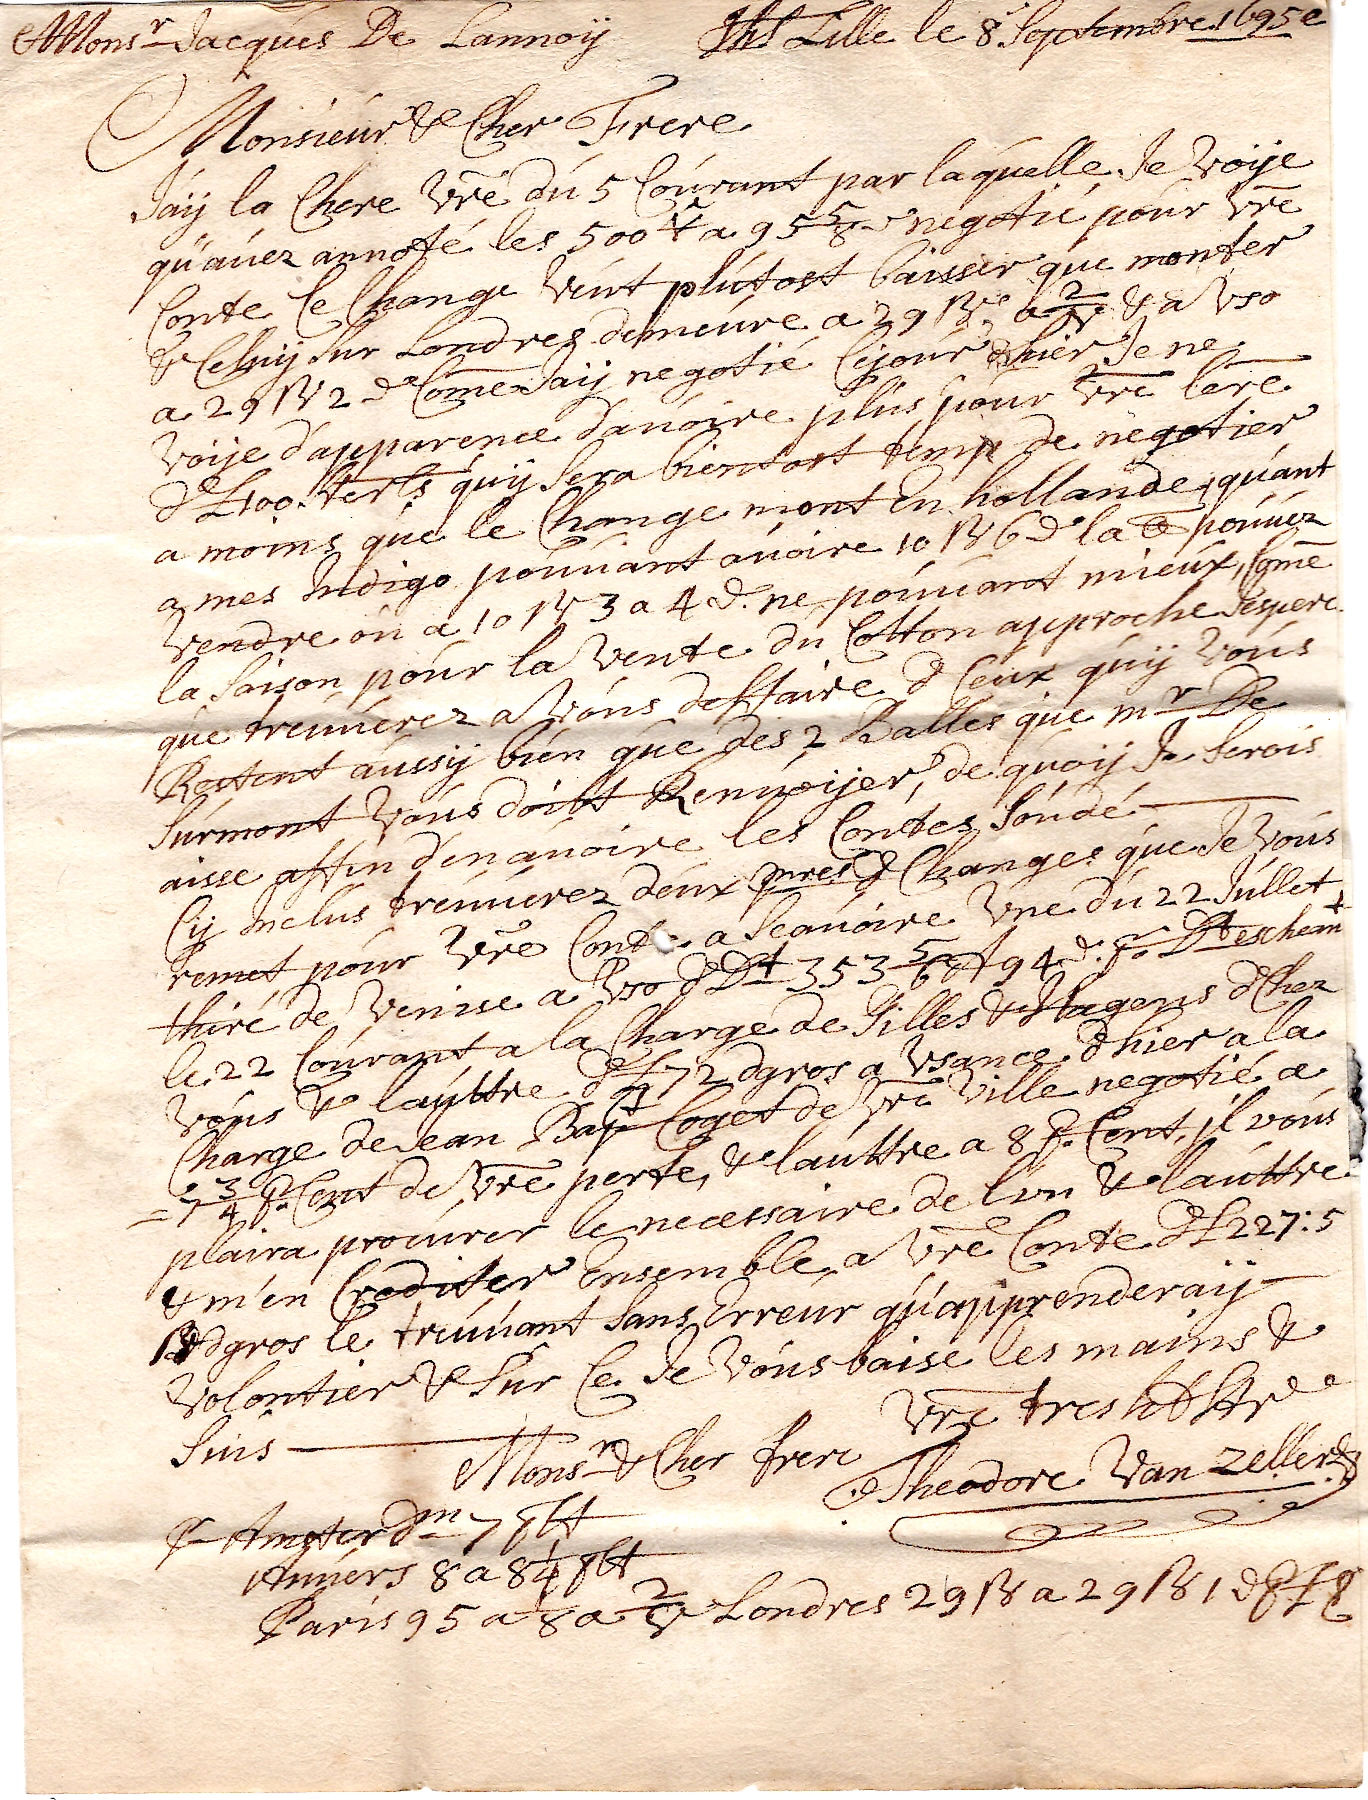 Monsr Jacques De Lannoÿ Jhs Lille le 8e Septembre 1695
Monsieur & Cher Frere
Jaÿ la Chere vre du 5 Courant par laquelle Je voije
qu'auez annoté les 500 a 95 5/8 negotié pour vre
Conte le Change veut plutost baisser que monter
& Celuij sur Londres demeure a 29 ß a 2/v & a vso
a 29 ß 2 d Come Jaij negotié Cejour dhier Je ne
voije d'apparence dauoire plus pour vre lere
d£100 sterls quij sera bientost temp de negotier
a moins que le Change mont En hollande, quant
a mes Indigo pouuant auoire 10 ß 6 d la pouuez
vendre ou a 10 ß 3 a 4 d. ne pouuant mieux, Come
la saison pour la vente du Cotton approche Jespere
que treuuerez a vous deffaire d Ceux quij vous
Restent aussij bien que des 2 Balles que mr De
Surmont vous doibt Renuoijer, de quoij Je serois
aisse affin d'en auoire les Contes soudé
Cij Inclus treuuerez deux pmres d Changes que Je vous
remet pour vre Conte a Scauoire vne du 22 Jullet
thiré de venise a vso d Dt 353 5/6 a 94 d. pr Dt escheant
le 22 Courant a la Charge de Gilles & Hagens d Chez
vous & lauttre d£ 72 dgros a vsance dhier a la
Charge de Jean Bapt Coget de vre ville negotié a
7 3/4 p. Cent de vre perte, & lauttre a 8 p. Cent, il vous
plaira procurer le necessaire de lun & lauttre
& m'en Crediter Ensemble, a vre Conte d£ 227: 5
ß dgros le treuuant sans Erreur qu'apprenderaij
volontier & sur Ce Je vous baise les mains &
suis
Monsr & Cher frere
vre tres hble Sr
Theodore van Zeller
Pr Amsterdm 7 plt
Anuers 8 a 8 1/4 plt
Paris 95 a 1/8 a 2/v Londres 29 ß a 29 ß 1 d p £